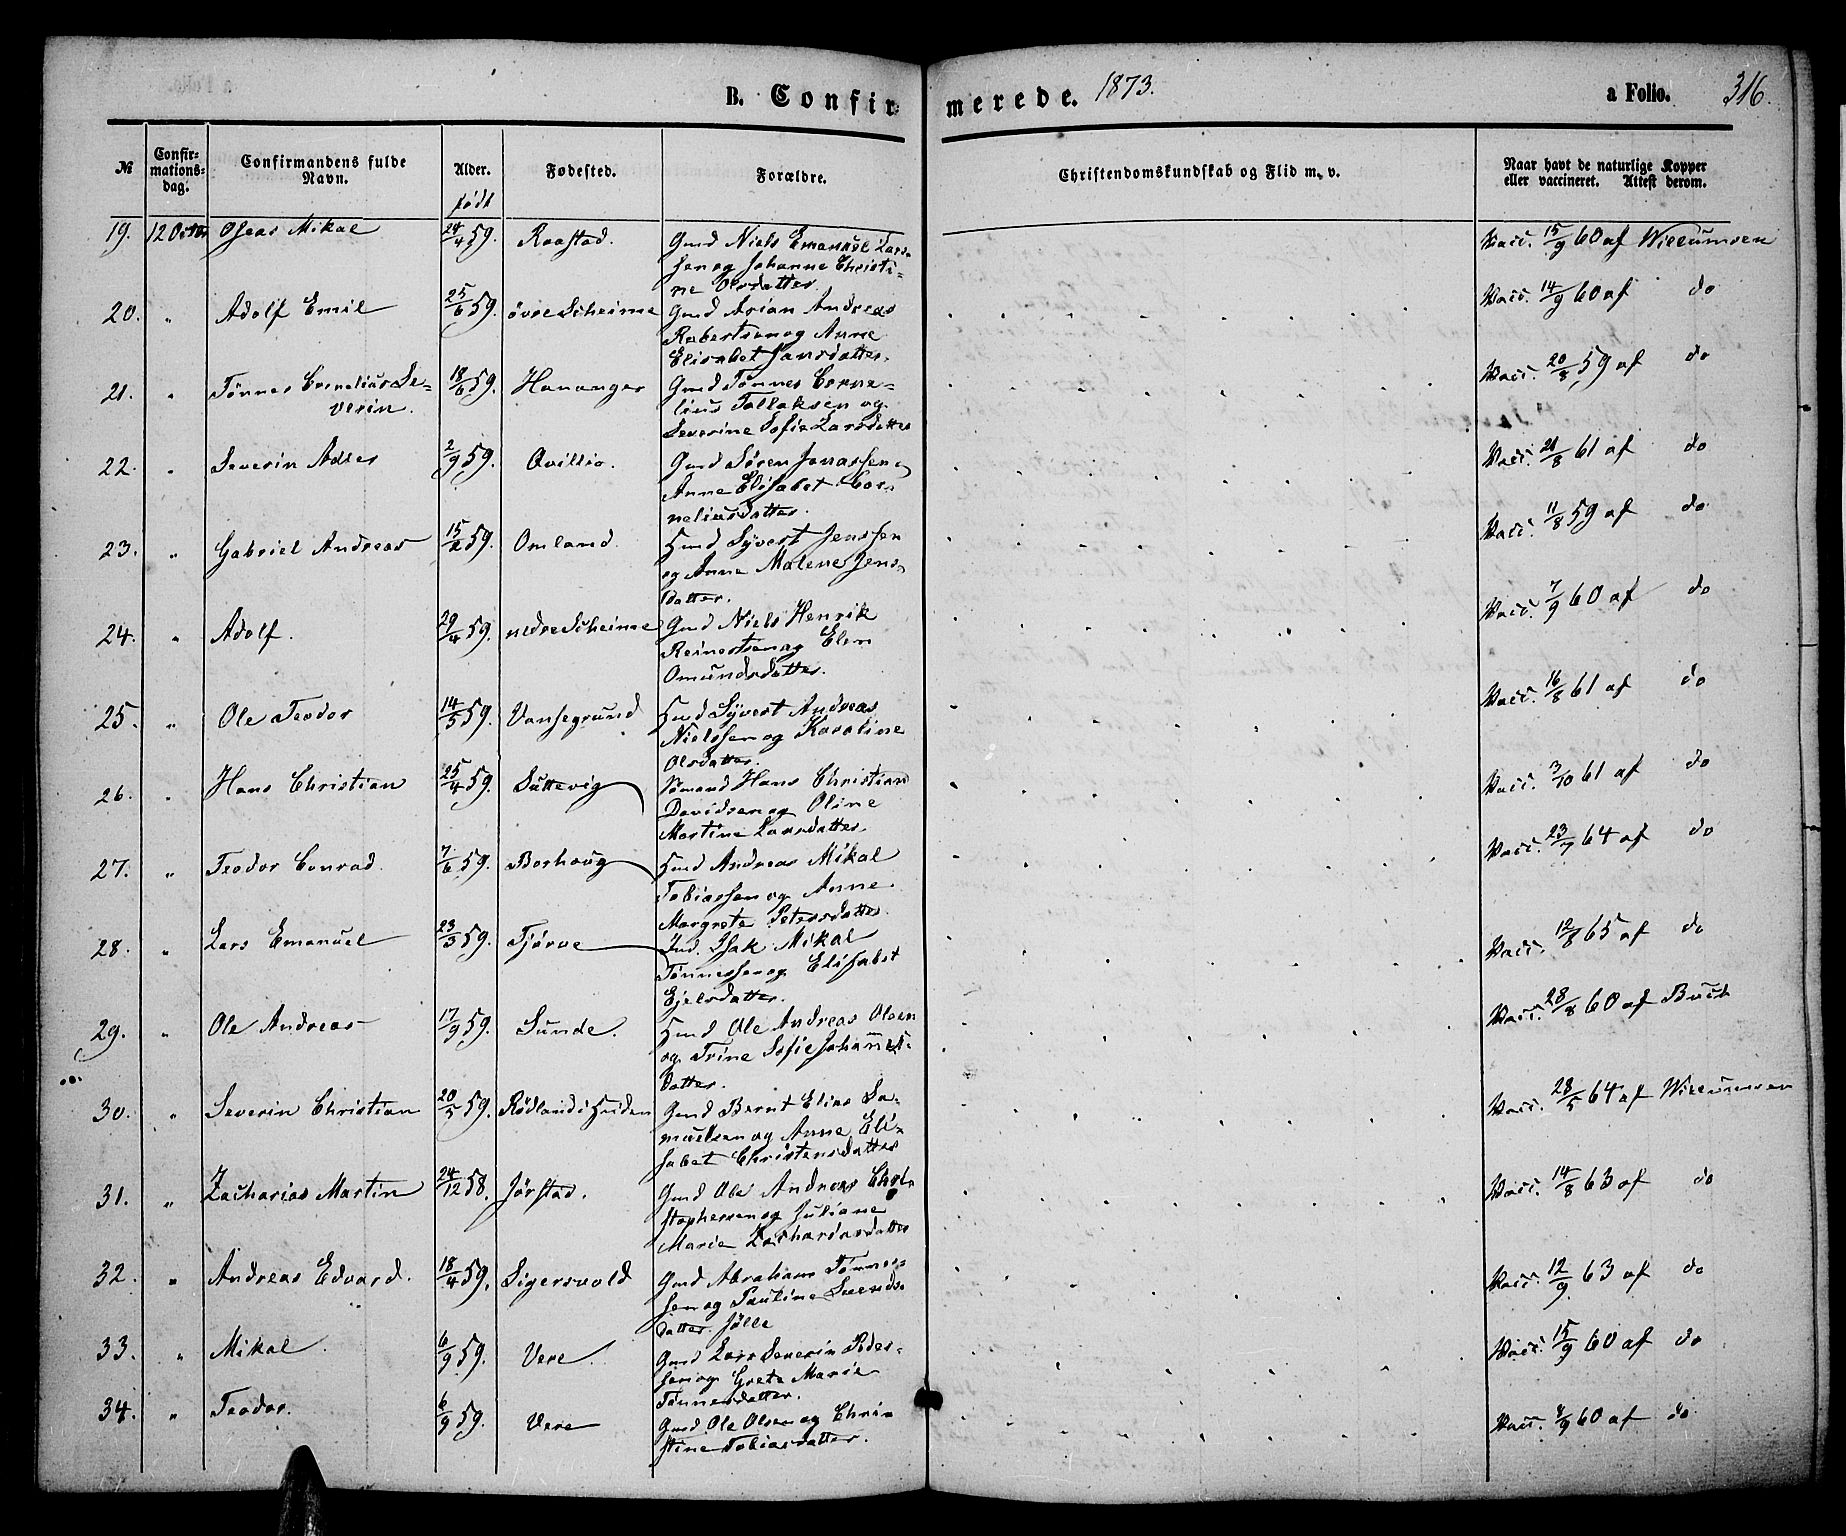 B. Confirmerede. 1873. a Folio. 316.
№ Confirmationsdag. Confirmandens fulde Navn. Alder. født Fødested. Forældre. Christendomskundskab og Flid m. v. Naar havt de naturlige Kopper eller vaccineret. Attest derom.
19. 12 Octbr Oseas Mikal 24/4 59. Raastad. Gmd Niels Emanuel Lars- Vacc. 15/9 60 af Willumsen
sen og Johanne Christi-
ne Olsdatter
20. " Adolf Emil 25/6 59. øvre Scheime Gmd Arian Andreas Vacc. 14/9 60 af do
Robertsen og Anne
Elisabet Jansdatter.
21. " Tønnes Cornelius Se- 18/6 59. Hananger Gmd Tønnes Corne- Vacc. 20/8 59 af do
verin. lius Tollaksen og
Severine Sofie Larsdatter
22. " Severin Adler 2/9 59. Qviltio. Gmd Søren Jonassen, Vacc. 21/8 61 af do
Anne Elisabet Cor-
neliusdatter.
23. " Gabriel Andreas 15/2 59. Omland. Hmd Syvert Jenssen Vacc. 11/8 59 af do
og Anne Malene Jens-
datter.
24. " Adolf. 29/4 59. nedre Scheime Gmd Niels Henrik Vacc. 7/9 60 af do
Reinertsen og Elen
Omundsdatter.
25. " Ole Teodor 14/5 59. Vansegrund Hmd Syvert Andreas Vacc. 16/8 61 af do
Nielssen og Karoline
Olsdatter.
26. " Hans Christian 25/4 59. Luttevig Sømand Hans Christian Vacc. 3/10 61 af do
Davidsen og Oline
Martine Larsdatter.
27. " Teodor Conrad. 7/6 59. Borhoug Hmd Andreas Mikal Vacc. 23/7 64 af do
Tobiassen og Anne
Margrete Petersdatter.
28. " Lars Emanuel 23/3 59. Tjørve Ind. Isak Mikal Vacc. 12/8 65 af do
Tønnessen og Elisabet
Ejelsdatter.
29. " Ole Andreas 17/9 59. Sunde. Hmd Ole Andreas Olsen Vacc. 28/8 60 af Buch
og Trine Sofie Johannes-
datter.
30. " Severin Christian 20/5 59. Rødland i Heiden Gmd Bernt Elias Sa- Vacc. 28/5 64 af Willumsen
muelsen og Anne Eli-
sabet Christensdatter
31. " Zacharias Martin 24/12 58. Jørstad. Gmd Ole Andreas Chri- Vacc. 14/8 63 af do
stophersen og Juliane
Marie Zachariasdatter
32. " Andreas Edvard. 18/4 59. Sigersvold Gmd Abraham Tønnes- Vacc. 12/9 63 af do
sen og Pauline Svends-
datter. Jølle
33. " Mikal. 6/9 59. Vere. Gmd Lars Severin Peder- Vacc. 15/9 60 af do
sen og Grete Marie
Tønnesdatter.
34. " Teodor. 6/9 59. Vere Gmd Ole Olsen og Chri- Vacc. 8/9 60 af do
stine Tobiasdatter.